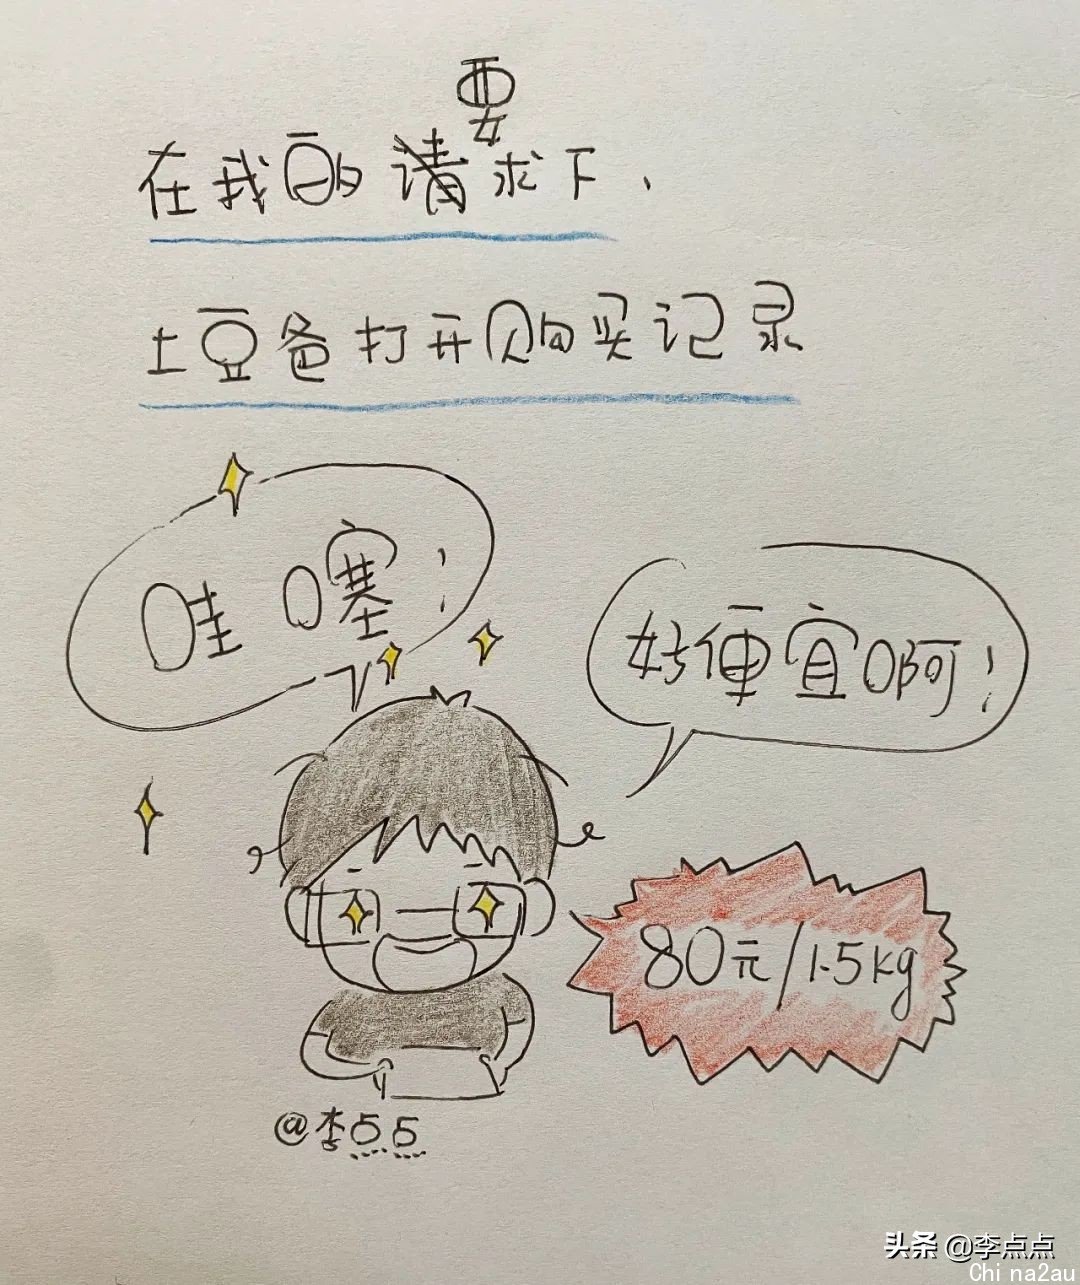 要
在我的请求下、
土豆爸打开购买记录
哇噻！
好便宜啊！
80元/1.5kg
@李点点
头条 @李点点
Chi na2au